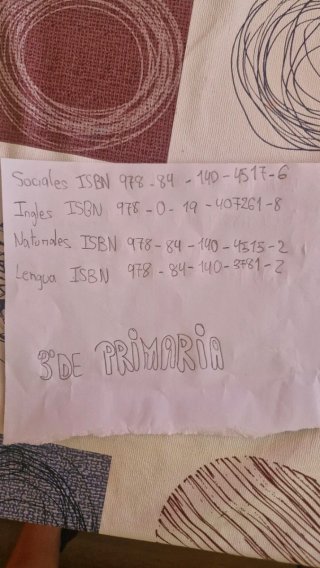 Sociales ISBN 978-84-140-4517-6
Ingles ISBN 978-0-19-407261-8
Naturales ISBN 978-84-140-4515-2
Lengua ISBN 978-84-140-3781-2
3º DE PRIMARIA